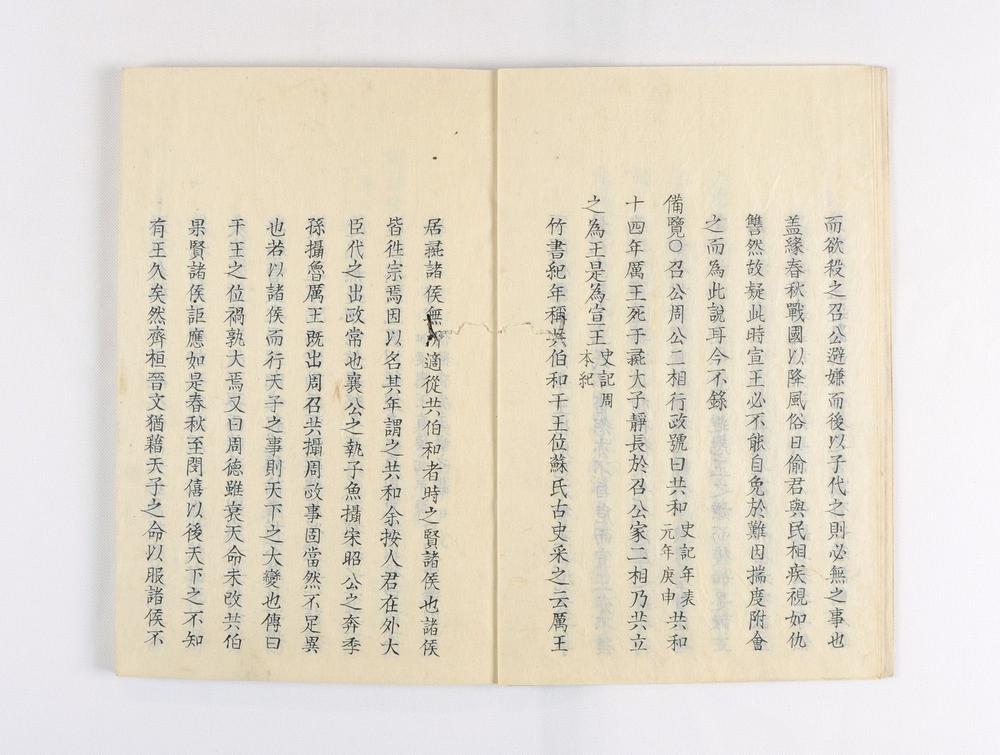 而欲殺之召公避嫌而後以子代之則必無之事也
盖緣春秋戰國以降風俗日偷君與民相疾視如仇
讐然故疑此時宣王必不能自免於難因揣度附會
之而為此說耳今不錄
備覽○召公周公二相行政號曰共和史記年表元年庚申共和
十四年厲王死于彘大子靜長於召公家二相乃共立
之為王是為宣王史記周本紀
竹書紀年稱共伯和干王位蘇氏古史采之云厲王
居彘諸侯無所適從共伯和者時之賢諸侯也諸侯
皆徃宗焉因以名其年謂之共和余按人君在外大
臣代之出政常也襄公之執子魚攝宋昭公之奔季
孫攝魯厲王既出周召共攝周政事固當然不足異
也若以諸侯而行天子之事則天下之大變也傳曰
干王之位禍孰大焉又曰周德雖衰天命未改共伯
果賢諸侯詎應如是春秋至閔僖以後天下之不知
有王久矣然齊桓晉文猶藉天子之命以服諸侯不